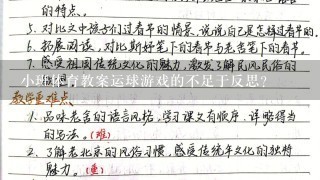 的特点。
5. 对比文中孩子们过春节的情景,说说自己是怎样过春节的。
6. 拓展阅读,对比斯妤笔下的春节与老舍笔下的春节。
7. 感受祖国传统文化的魅力,激发了解民风民俗的
小班体育教案运球游戏的不足于反思?
教学重难点
1. 品味老舍的语言风格,学习课文有顺序、详略得当
的写法。(难)
2. 了解老北京的风俗习惯,感受传统年文化的独特
魅力。(重)